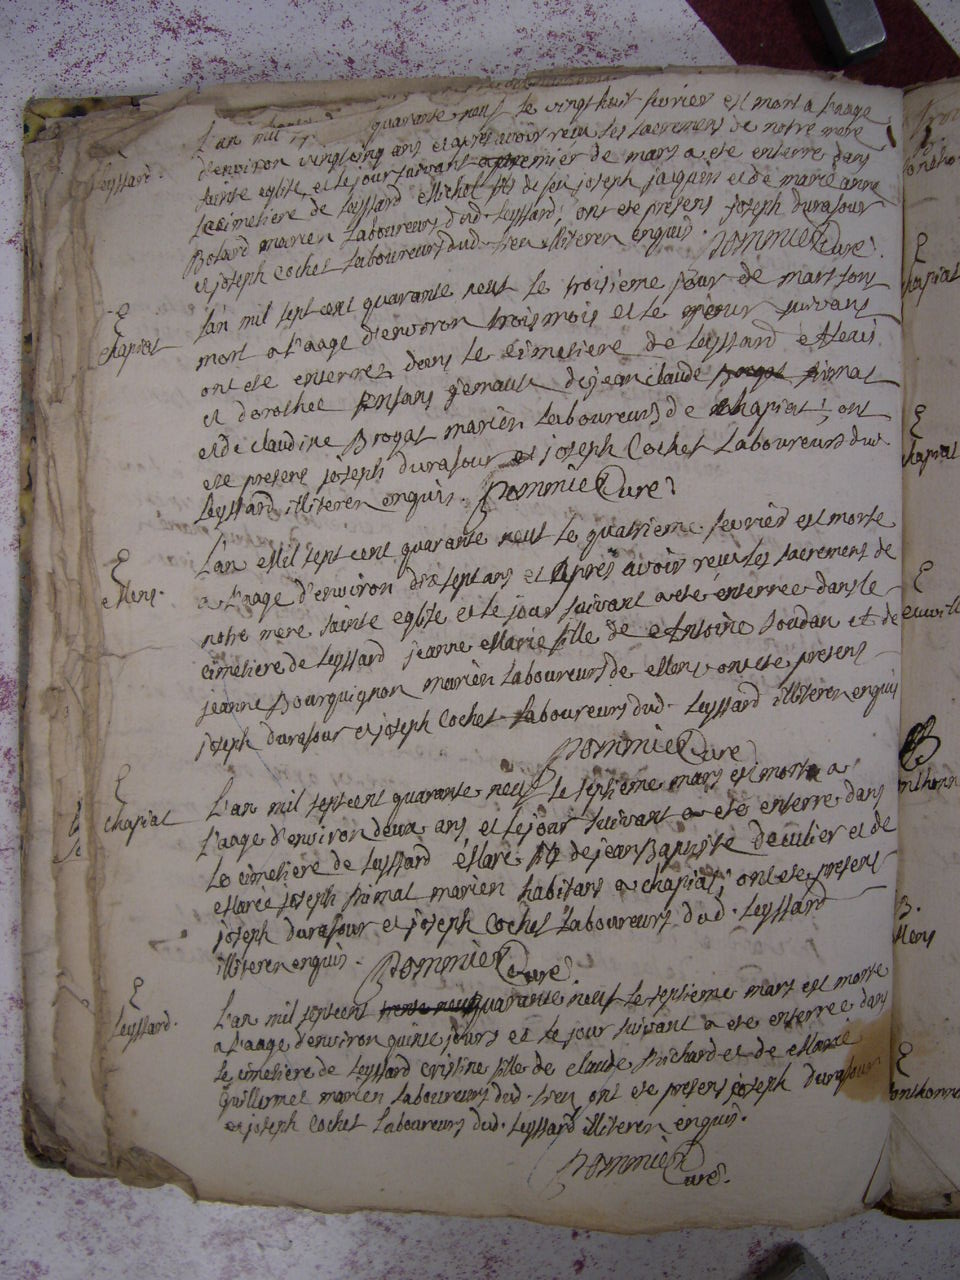 L'an mil quarante neuf le vingt huit fevrier est mort a l'aage
d'environ vingt cinq ans et apres avoir receu les sacremens de notre mere
Leyssard. sainte eglise, et le jour suivant premier de mars a ete enterré dans
le cimetiere de Leyssard Michel fils de feu joseph jacquin et de marie anne
Bolard mariéz Laboureurs dud. Leyssard; ont ete presens joseph durafour
et joseph Cochet Laboureurs dud. lieu illiteréz enquis. Pommier Curé.
Chapiat L'an mil sept cent quarante neuf le troisieme jour de mars sont
mort a l'aage d'environ trois mois et le jour suivans
ont ete enterréz dans le cimetiere de Leyssard Alexis
et dorothee Enfans de jean claude
et de claudine Brogat mariéz Laboureurs de Chapiat; ont
ete presens joseph durafour et joseph Cochet Laboureurs dud.
Leyssard illiteréz enquis. Pommier Curé
Mens. L'an Mil sept cent quarante neuf le quatrieme fevrier est morte
a l'aage d'environ dix sept ans et Après avoir receu les sacremens de
notre mere sainte eglise et le jour suivant a ete enterrée dans le
cimetiere de Leyssard jeanne Marie fille de Antoine Joudan et de
jeanne Bourguignon mariéz Laboureurs de Mens ont ete presens
joseph durafour et joseph Cochet Laboureurs dud. Leyssard illiteréz enquis
Pommier Curé
Chapiat L'an mil sept cent quarante neuf le septieme mars est morte a
l'aage d'environ deux ans, et le jour suivant a ete enterré dans
Le cimetiere de Leyssard de jean Baptiste et de
Marie joseph mariéz habitans a chapiat; ont ete presens
joseph durafour et joseph Cochet Laboureurs dud. Leyssard
illiteréz enquis. Pommier Curé
Leyssard. L'an mil sept cent quarante neuf le septieme mars est morte
a l'aage d'environ quinze jours et le jour suivant a ete enterrée dans
le cimetiere de Leyssard cristine fille de claude et de Marie
Guillermet mariéz Laboureurs dud. lieu, ont ete presens joseph durafour
et joseph Cochet Laboureurs dud. Leyssard illiteréz enquis.
Pommier Curé.